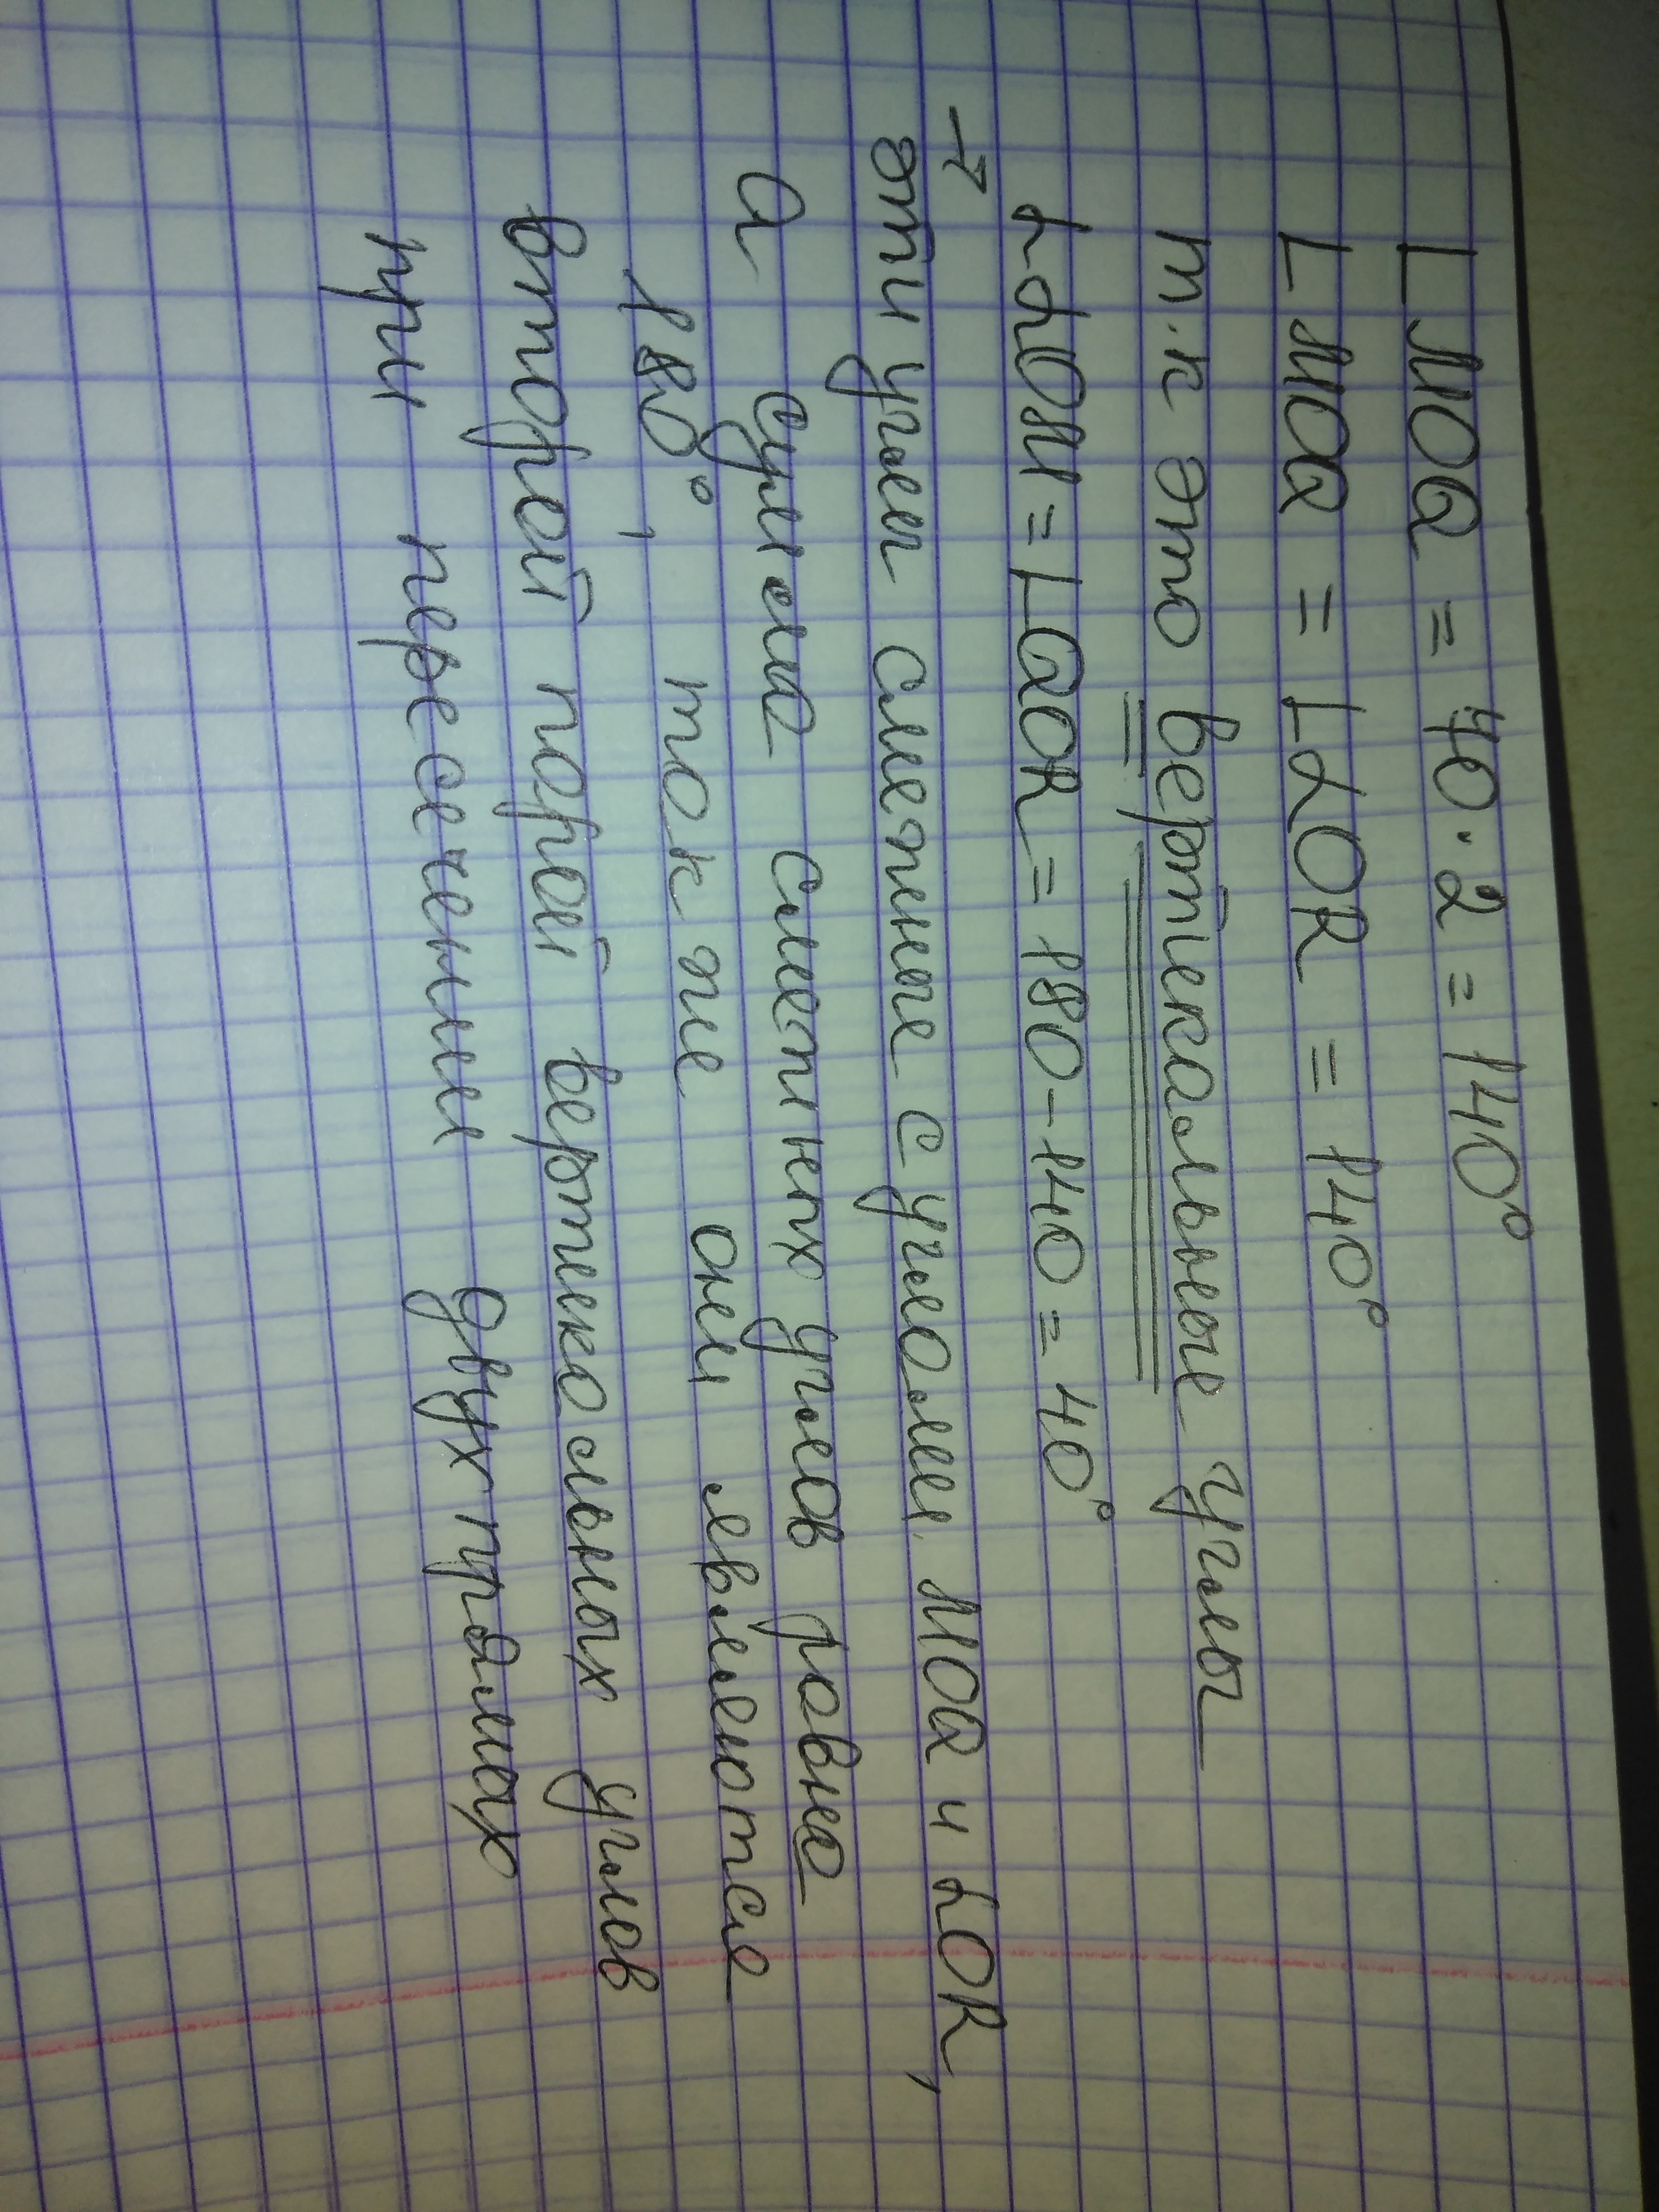 ∠MOQ = 70·2 = 140°
∠MOQ = ∠LOR = 140°
т.к это вертикальные углы
∠LOM = ∠QOR = 180-140 = 40°
→ эти углы смежные с углами MOQ и LOR,
а сумма смежных углов равна
180°, также они являются
второй парой вертикальных углов
при пересечении двух прямых